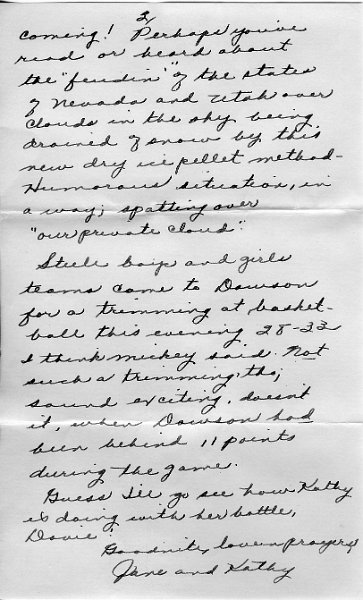 2/
coming! Perhaps you've
read or heard about
the "feudin'" of the states
of Nevada and Utah over
clouds in the sky being
drained of snow by this
new dry ice pellet method -
Humorous situation, in
a way; spatting over
"our private cloud".
Steele boys and girls
teams came to Dawson
for a trimming at basket-
ball this evening 28-33
I think Mickey said. Not
such a trimming, tho;
sound exciting, doesn't
it, when Dawson had
been behind 11 points
during the game.
Guess I'll go see how Kathy
is doing with her bottle,
Davie!
Goodnite, love in prayers,
Jane and Kathy